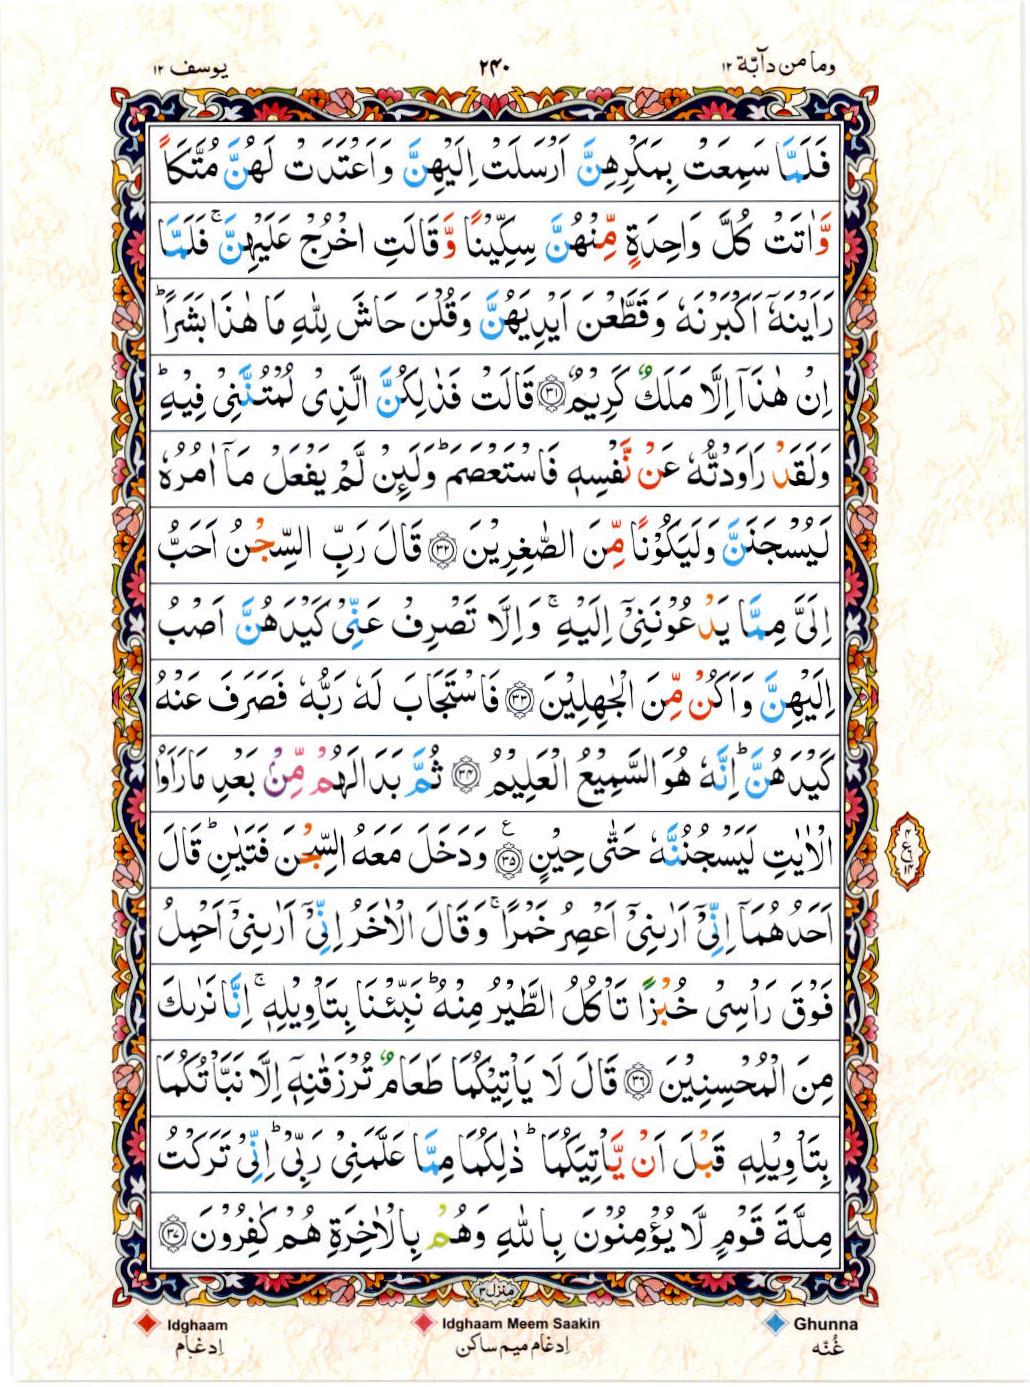 وما من دآبة ۱۲
۲۴۰
یوسف ۱۲
فَلَمَّا سَمِعَتْ بِمَكْرِهِنَّ اَرْسَلَتْ اِلَيْهِنَّ وَاَعْتَدَتْ لَهُنَّ مُتَّكَاً
وَّاٰتَتْ كُلَّ وَاحِدَةٍ مِّنْهُنَّ سِكِّيْنًا وَّقَالَتِ اخْرُجْ عَلَيْهِنَّ ۚ فَلَمَّا
رَاَيْنَهٗۤ اَكْبَرْنَهٗ وَقَطَّعْنَ اَيْدِيَهُنَّ وَقُلْنَ حَاشَ لِلّٰهِ مَا هٰذَا بَشَرًا ؕ
اِنْ هٰذَاۤ اِلَّا مَلَكٌ كَرِيْمٌ ﴿۳۱﴾ قَالَتْ فَذٰلِكُنَّ الَّذِىْ لُمْتُنَّنِىْ فِيْهِ ؕ
وَلَقَدْ رَاوَدْتُّهٗ عَنْ نَّفْسِهٖ فَاسْتَعْصَمَ ؕ وَلَٮِٕنْ لَّمْ يَفْعَلْ مَاۤ اٰمُرُهٗ
لَيُسْجَنَنَّ وَلَيَكُوْنًا مِّنَ الصّٰغِرِيْنَ ﴿۳۲﴾ قَالَ رَبِّ السِّجْنُ اَحَبُّ
اِلَىَّ مِمَّا يَدْعُوْنَنِىْۤ اِلَيْهِ ۚ وَاِلَّا تَصْرِفْ عَنِّىْ كَيْدَهُنَّ اَصْبُ
اِلَيْهِنَّ وَاَكُنْ مِّنَ الْجٰهِلِيْنَ ﴿۳۳﴾ فَاسْتَجَابَ لَهٗ رَبُّهٗ فَصَرَفَ عَنْهُ
كَيْدَهُنَّ ؕ اِنَّهٗ هُوَ السَّمِيْعُ الْعَلِيْمُ ﴿۳۴﴾ ثُمَّ بَدَا لَهُمْ مِّنْۢ بَعْدِ مَا رَاَوُا
الْاٰيٰتِ لَيَسْجُنُنَّهٗ حَتّٰى حِيْنٍ ﴿۳۵﴾ ع وَدَخَلَ مَعَهُ السِّجْنَ فَتَيٰنِ ؕ قَالَ
اَحَدُهُمَاۤ اِنِّىْۤ اَرٰٮنِىْۤ اَعْصِرُ خَمْرًا ۚ وَقَالَ الْاٰخَرُ اِنِّىْۤ اَرٰٮنِىْۤ اَحْمِلُ
فَوْقَ رَاْسِىْ خُبْزًا تَاْكُلُ الطَّيْرُ مِنْهُ ؕ نَبِّئْنَا بِتَاْوِيْلِهٖ ۚ اِنَّا نَرٰٮكَ
مِنَ الْمُحْسِنِيْنَ ﴿۳۶﴾ قَالَ لَا يَاْتِيْكُمَا طَعَامٌ تُرْزَقٰنِهٖۤ اِلَّا نَبَّاْتُكُمَا
بِتَاْوِيْلِهٖ قَبْلَ اَنْ يَّاْتِيَكُمَا ؕ ذٰلِكُمَا مِمَّا عَلَّمَنِىْ رَبِّىْ ؕ اِنِّىْ تَرَكْتُ
مِلَّةَ قَوْمٍ لَّا يُؤْمِنُوْنَ بِاللّٰهِ وَهُمْ بِالْاٰخِرَةِ هُمْ كٰفِرُوْنَ ﴿۳۷﴾
منزل ۳
Idghaam
Idghaam Meem Saakin
Ghunna
اِدغام
اِدغام میم ساکن
غُنّه